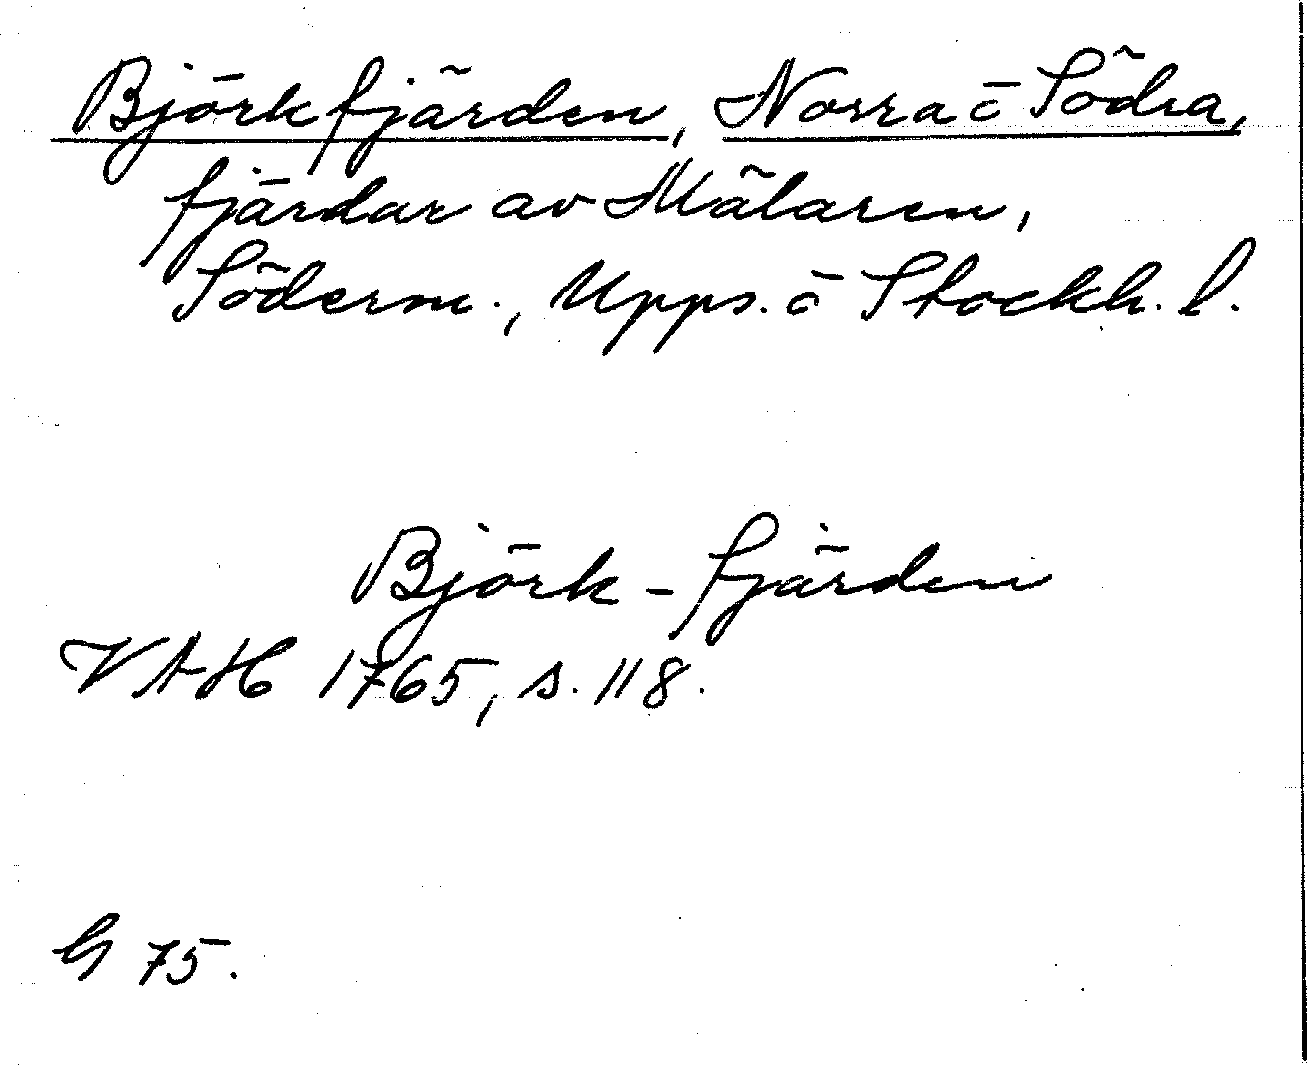 Björkfjärden, Norra o Södra,
fjärdar av Mälaren,
Söderm., Upps. o Stockh. l.
Björk-fjärden
VAH 1765, s. 118.
G 75.